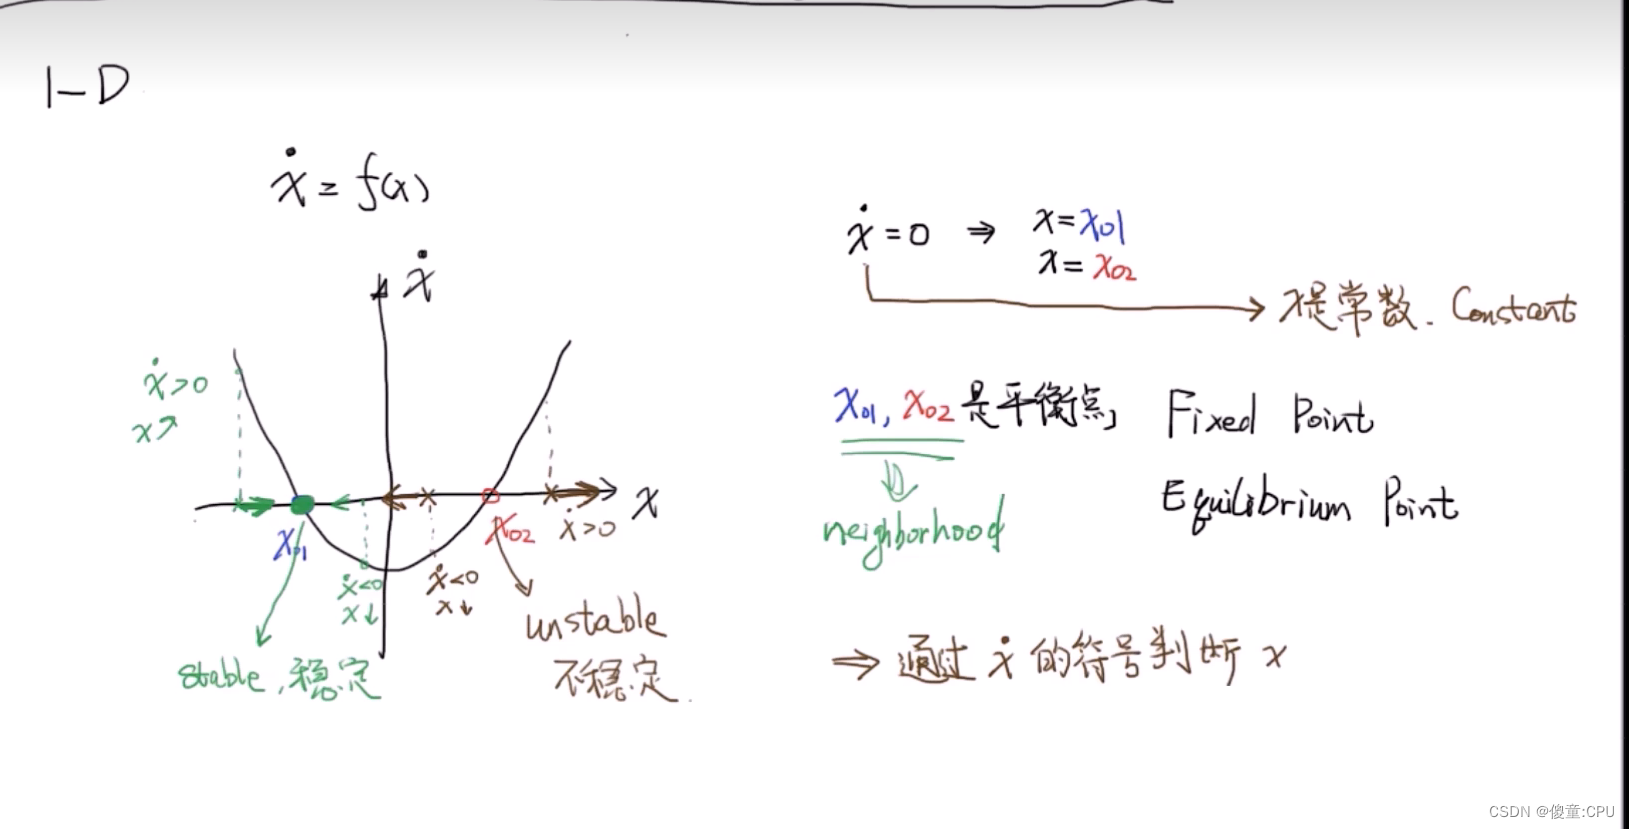 1-D
ẋ = f(x)
ẋ
ẋ>0
x↗
x
x01
x02
ẋ>0
ẋ<0
x↓
ẋ<0
x↓
stable,稳定
unstable
不稳定.
ẋ=0 ⇒ x=x01
x=x02
x是常数. Constant
x01, x02 是平衡点, Fixed Point
Equilibrium Point
neighborhood
⇒ 通过 ẋ 的符号判断 x
CSDN @傻童:CPU